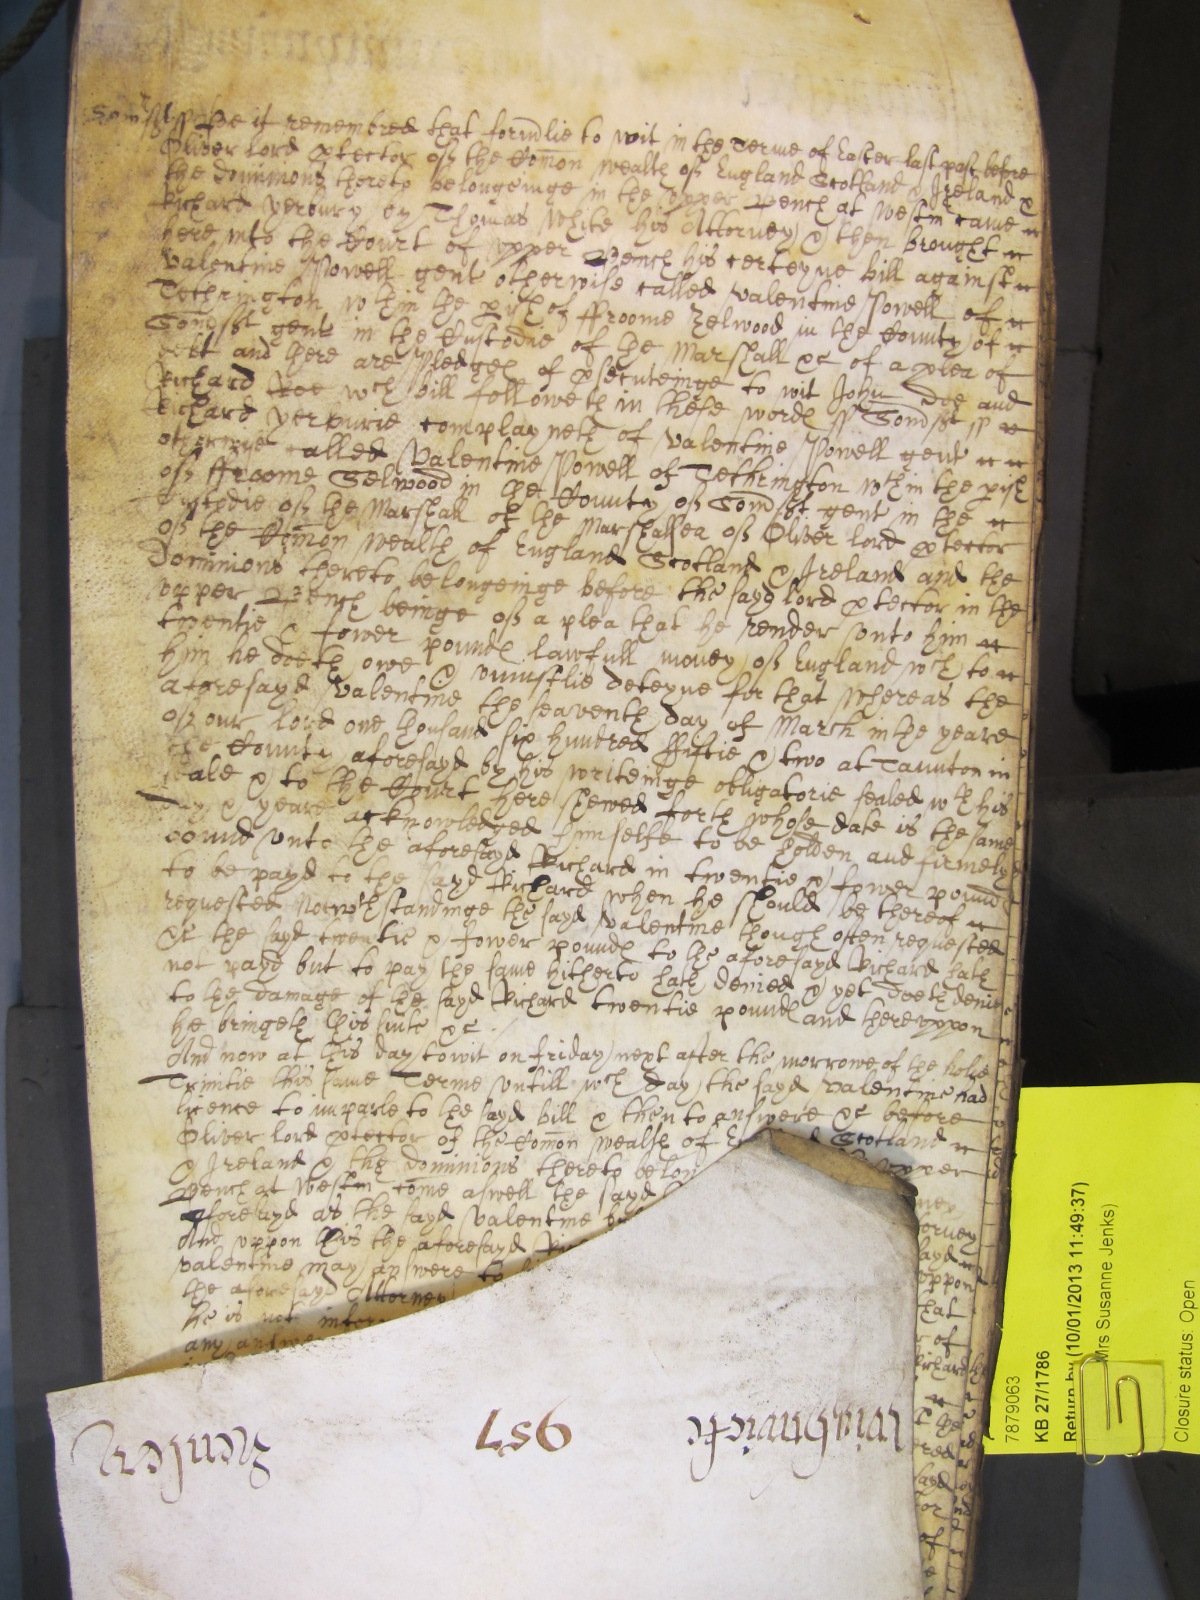 Som~st ss Be it remembred that form~lie to wit in the Terme of Easter last past before
Oliver lord Protector of the Com~on wealth of England Scotland & Ireland &
the dominions thereto belongeinge in the upper Bench at Westm~ came
Richard Yerbury by Thomas White his Attorney & then brought
here into the Court of upper Bench his certeyne bill against
Valentine Powell gent otherwise called Valentine Powell of
Tethrington wthin the p~ish of ffroome Zelwood in the County of
Som~st gent in the Custodie of the Marshall &c of a plea of
debt and there are Pledges of p~secuteinge to wit John Doe and
Richard Roe wch bill followeth in these words ss Som~st ss
Richard Yerburie complayneth of Valentine Powell gent
otherwise called Valentine Powell of Tethrington wthin the p~ish
of ffroome Selwood in the County of Som~st gent in the
Custodie of the Marshall of the Marshalsea of Oliver lord P~tector
of the Com~on wealth of England Scotland & Ireland and the
Dominions thereto belongeinge before the sayd lord P~tector in the
upper Bench beinge of a plea that he render unto him
twentie & fower pounds lawfull money of England wch to
him he doeth owe & uniustlie deteyne for that whereas the
aforesayd Valentine the seaventh day of March in the yeare
of our lord one thousand six hundred ffiftie & two at Taunton in
the County aforesayd by his writeinge obligatorie sealed wth his
seale & to the Court here shewed forth whose date is the same
day & yeare acknowledged himselfe to be holden and firmely
bound unto the aforesayd Richard in twentie & fower pounds
to be payd to the sayd Richard when he should be thereof
requested Notwthstandinge the sayd Valentine though often requested
&c the sayd twentie & fower pounds to the aforesayd Richard hath
not payd but to pay the same hitherto hath denied & yet doeth denie
to the damage of the sayd Richard twentie pounds and thereuppon
he bringeth this suite &c
And now at this day to wit on friday next after the morrowe of the holie
Trinitie this same Terme untill wch day the sayd Valentine had
licence to imparle to the sayd bill & then to answere &c before
Oliver lord P~tector of the Com~on wealth of Scotland
& Ireland & the dominions thereto belon upper
Bench at Westm~ come aswell the sayd
aforesayd as the sayd Valentine
And uppon this the aforesayd
Valentine may answere to
the aforesayd Attorney
he is not infor
any answere
957
7879063
KB 27/1786
Return by (10/01/2013 11:49:37)
Mrs Susanne Jenks)
Closure status: Open